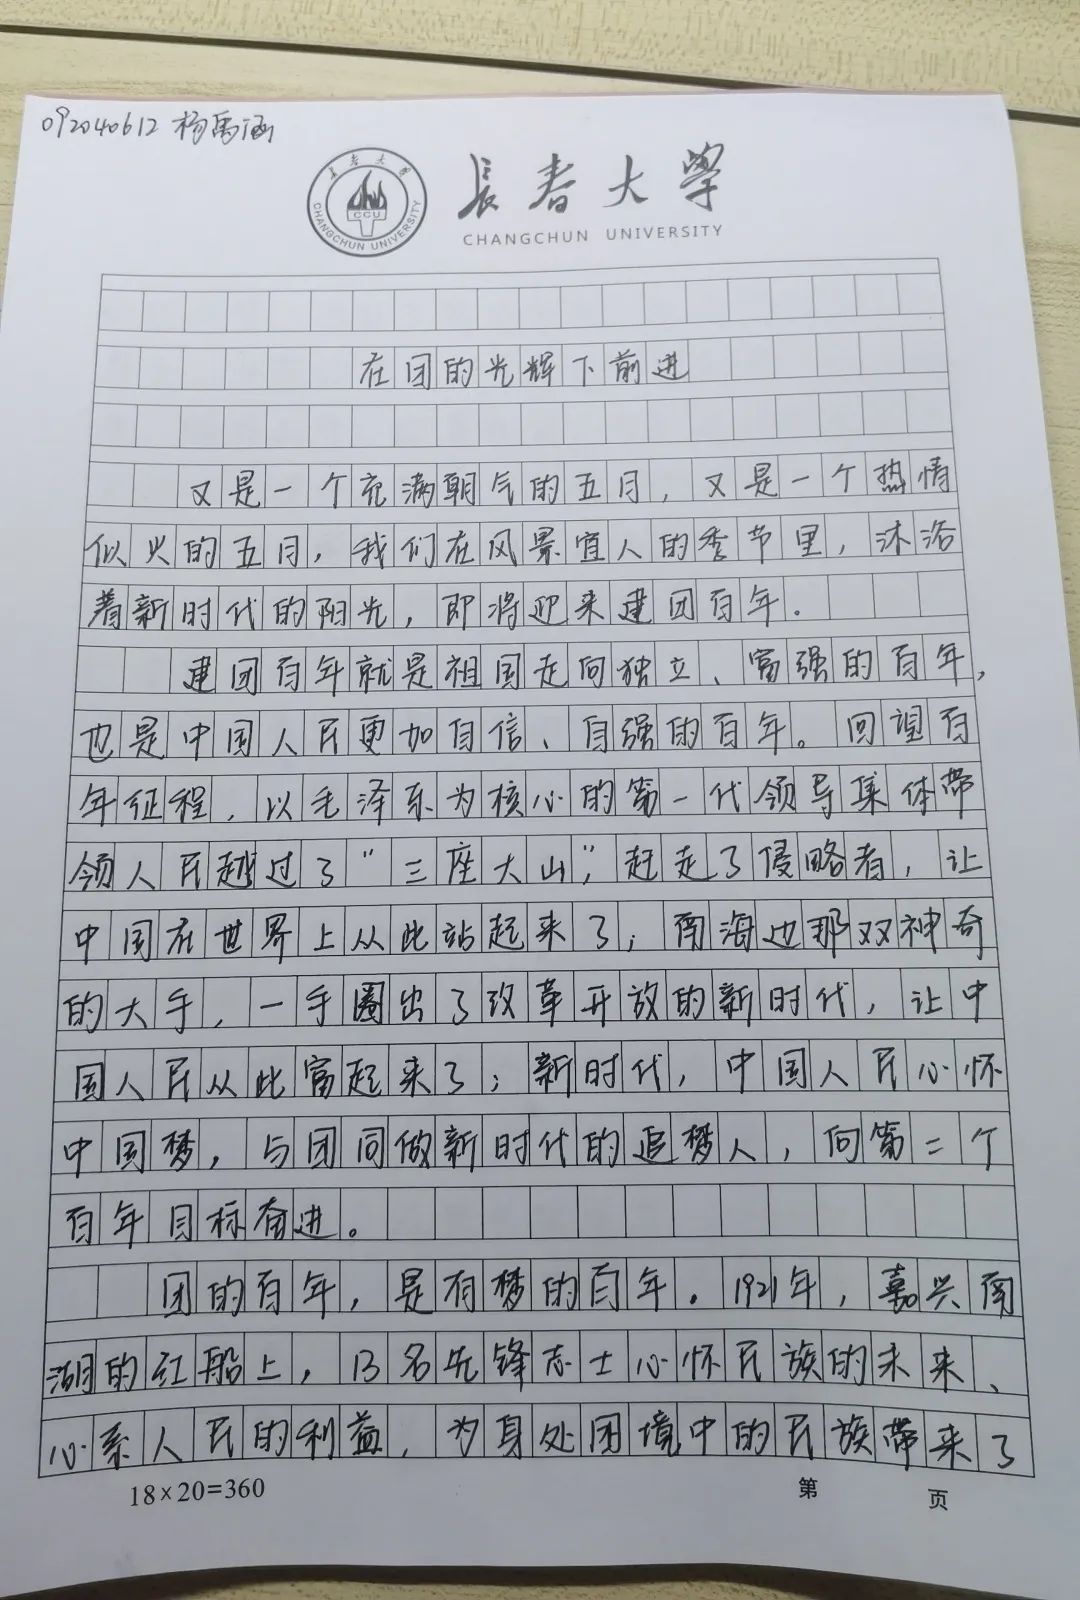 092040612 杨禹涵
長春大学
CHANGCHUN UNIVERSITY
長春大学
CCU
CHANGCHUN UNIVERSITY
在团的光辉下前进
又是一个充满朝气的五月，又是一个热情
似火的五月，我们在风景宜人的季节里，沐浴
着新时代的阳光，即将迎来建团百年.
建团百年就是祖国走向独立、富强的百年，
也是中国人民更加自信、自强的百年。回望百
年征程，以毛泽东为核心的第一代领导集体带
领人民越过了“三座大山”，赶走了侵略者，让
中国在世界上从此站起来了；南海边那双神奇
的大手，一手圈出了改革开放的新时代，让中
国人民从此富起来了；新时代，中国人民心怀
中国梦，与团同做新时代的追梦人，向第二个
百年目标奋进。
团的百年，是有梦的百年.1921年，嘉兴南
湖的红船上，13名先锋志士心怀民族的未来、
心系人民的利益，为身处困境中的民族带来了
18×20=360
第 页